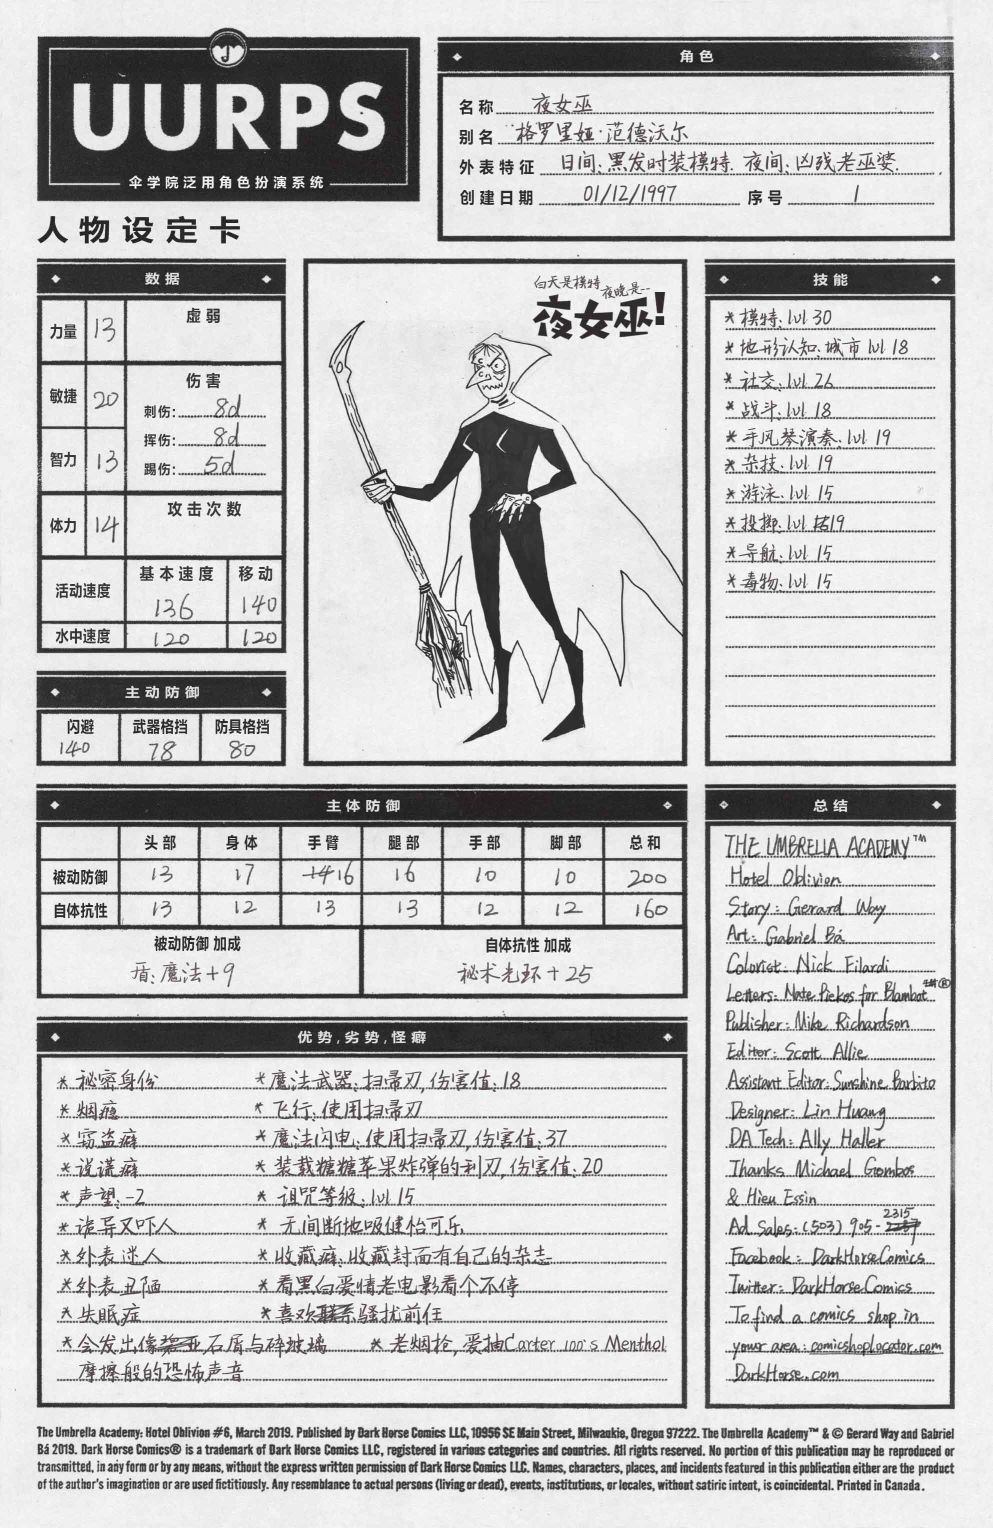 UURPS
伞学院泛用角色扮演系统
人物设定卡
角色
名称 夜女巫
别名 格罗里娅·范德沃尔
外表特征 日间:黑发时装模特. 夜间:凶残老巫婆.
创建日期 01/12/1997 序号 1
数据
力量 13 虚弱
敏捷 20 伤害
刺伤: 8d
挥伤: 8d
智力 13 踢伤: 5d
体力 14 攻击次数
活动速度 基本速度 136 移动 140
水中速度 120 120
主动防御
闪避 武器格挡 防具格挡
140 78 80
白天是模特
夜晚是--
夜女巫!
技能
*模特:lvl 30
*地形认知、城市 lvl 18
*社交:lvl 26
*战斗:lvl 18
*手风琴演奏:lvl 19
*杂技:lvl 19
*游泳:lvl 15
*投掷:lvl 19
*导航:lvl 15
*毒物:lvl 15
主体防御
头部 身体 手臂 腿部 手部 脚部 总和
被动防御 13 17 14 16 16 10 10 200
自体抗性 13 12 13 13 12 12 160
被动防御 加成 自体抗性 加成
盾:魔法+9 秘术光环+25
优势,劣势,怪癖
*秘密身份 *魔法武器:扫帚刃,伤害值:18
*烟瘾 *飞行:使用扫帚刃
*窃盗癖 *魔法闪电:使用扫帚刃,伤害值:37
*说谎癖 *装载糖糖苹果炸弹的利刃,伤害值:20
*声望:-2 *诅咒等级:lvl 15
*诡异又吓人 *无间断地吸健怡可乐
*外表迷人 *收藏癖:收藏封面有自己的杂志
*外表丑陋 *看黑白爱情老电影看个不停
*失眠症 *喜欢联系骚扰前任
*会发出像石屑与碎玻璃 *老烟抢,爱抽Carter 100's Menthol
摩擦般的恐怖声音
总结
THE UMBRELLA ACADEMY™
Hotel Oblivion
Story: Gerard Way
Art: Gabriel Bá
Colorist: Nick Filardi
Letters: Nate Piekos for Blambot®
Publisher: Mike Richardson
Editor: Scott Allie
Assistant Editor: Sunshine Barbito
Designer: Lin Huang
DA Tech: Ally Haller
Thanks Michael Gombos
& Hieu Essin
Ad Sales: (503) 905-2315
Facebook: DarkHorseComics
Twitter: DarkHorseComics
To find a comics shop in
your area: comicshoplocator.com
DarkHorse.com
The Umbrella Academy: Hotel Oblivion #6, March 2019. Published by Dark Horse Comics LLC, 10956 SE Main Street, Milwaukie, Oregon 97222. The Umbrella Academy™ & © Gerard Way and Gabriel
Bá 2019. Dark Horse Comics® is a trademark of Dark Horse Comics LLC, registered in various categories and countries. All rights reserved. No portion of this publication may be reproduced or
transmitted, in any form or by any means, without the express written permission of Dark Horse Comics LLC. Names, characters, places, and incidents featured in this publication either are the product
of the author's imagination or are used fictitiously. Any resemblance to actual persons (living or dead), events, institutions, or locales, without satiric intent, is coincidental. Printed in Canada.